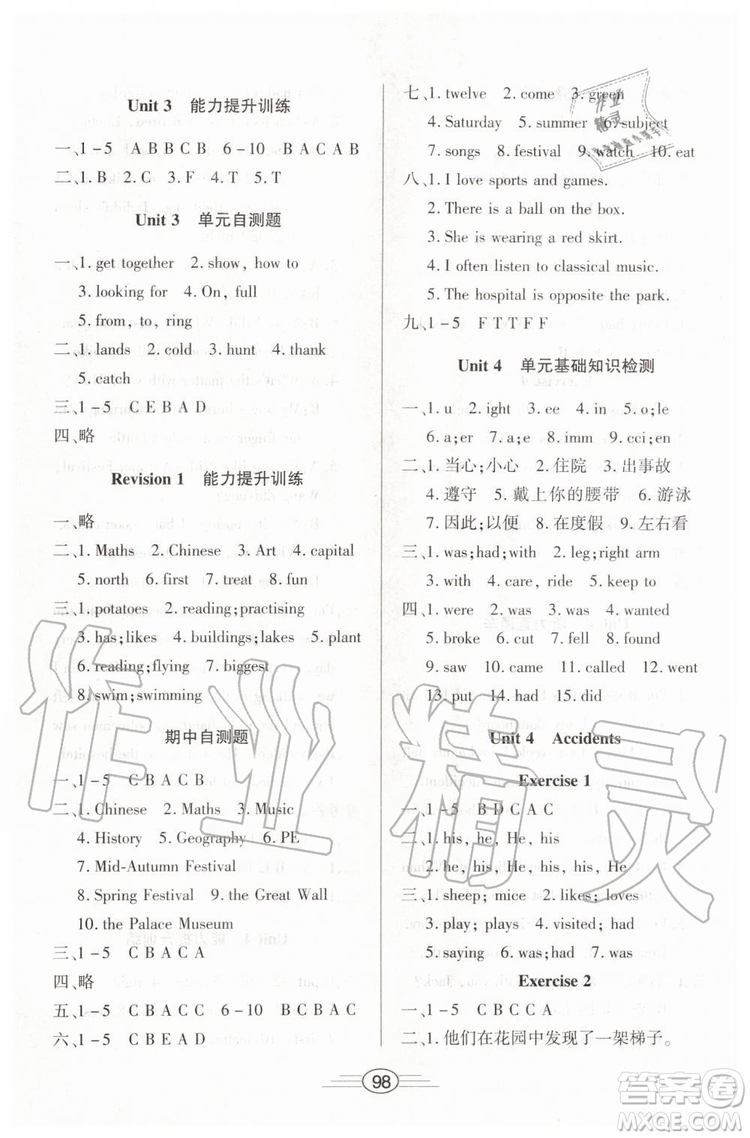 Unit 3 能力提升训练
一、1-5 A B B C B 6-10 B A C A B
二、1. B 2. C 3. F 4. T 5. T
Unit 3 单元自测题
一、1. get together 2. show, how to
3. looking for 4. On, full
5. from, to, ring
二、1. lands 2. cold 3. hunt 4. thank
5. catch
三、1-5 C E B A D
四、略
Revision 1 能力提升训练
一、略
二、1. Maths 2. Chinese 3. Art 4. capital
5. north 6. first 7. treat 8. fun
三、1. potatoes 2. reading;practising
3. has;likes 4. buildings;lakes 5. plant
6. reading;flying 7. biggest
8. swim;swimming
期中自测题
一、1-5 C B A C B
二、1. Chinese 2. Maths 3. Music
4. History 5. Geography 6. PE
7. Mid-Autumn Festival
8. Spring Festival 9. the Great Wall
10. the Palace Museum
三、1-5 C B A C A
四、略
五、1-5 C B A C C 6-10 B C B A C
六、1-5 C B E A D
七、1. twelve 2. come 3. green
4. Saturday 5. summer 6. subject
7. songs 8. festival 9. watch 10. eat
八、1. I love sports and games.
2. There is a ball on the box.
3. She is wearing a red skirt.
4. I often listen to classical music.
5. The hospital is opposite the park.
九、1-5 F T T F F
Unit 4 单元基础知识检测
一、1. u 2. ight 3. ee 4. o;le
6. a;er 7. a;e 8. imm 9. cci;en
二、1. 当心;小心 2. 住院 3. 出事故
4. 遵守 5. 戴上你的腰带 6. 游泳
7. 因此;以便 8. 在度假 9. 左右看
三、1. was;had;with 2. leg;right arm
3. with 4. care 5. ride 6. keep to
四、1. were 2. was 3. had 4. wanted
5. broke 6. cut 7. fell 8. found
9. saw 10. came 11. called 12. went
13. put 14. had 15. did
Unit 4 Accidents
Exercise 1
一、1-5 B D C A C
二、1. his, he, He, his
2. he, his, He, his, his
三、1. sheep; mice 2. found; falling
3. play; plays 4. visited; had
5. saying 6. was;had 7. was
Exercise 2
一、1-5 C B C C A
二、1. 他们在花园中发现了一架梯子。
98
作业精灵
答案圈